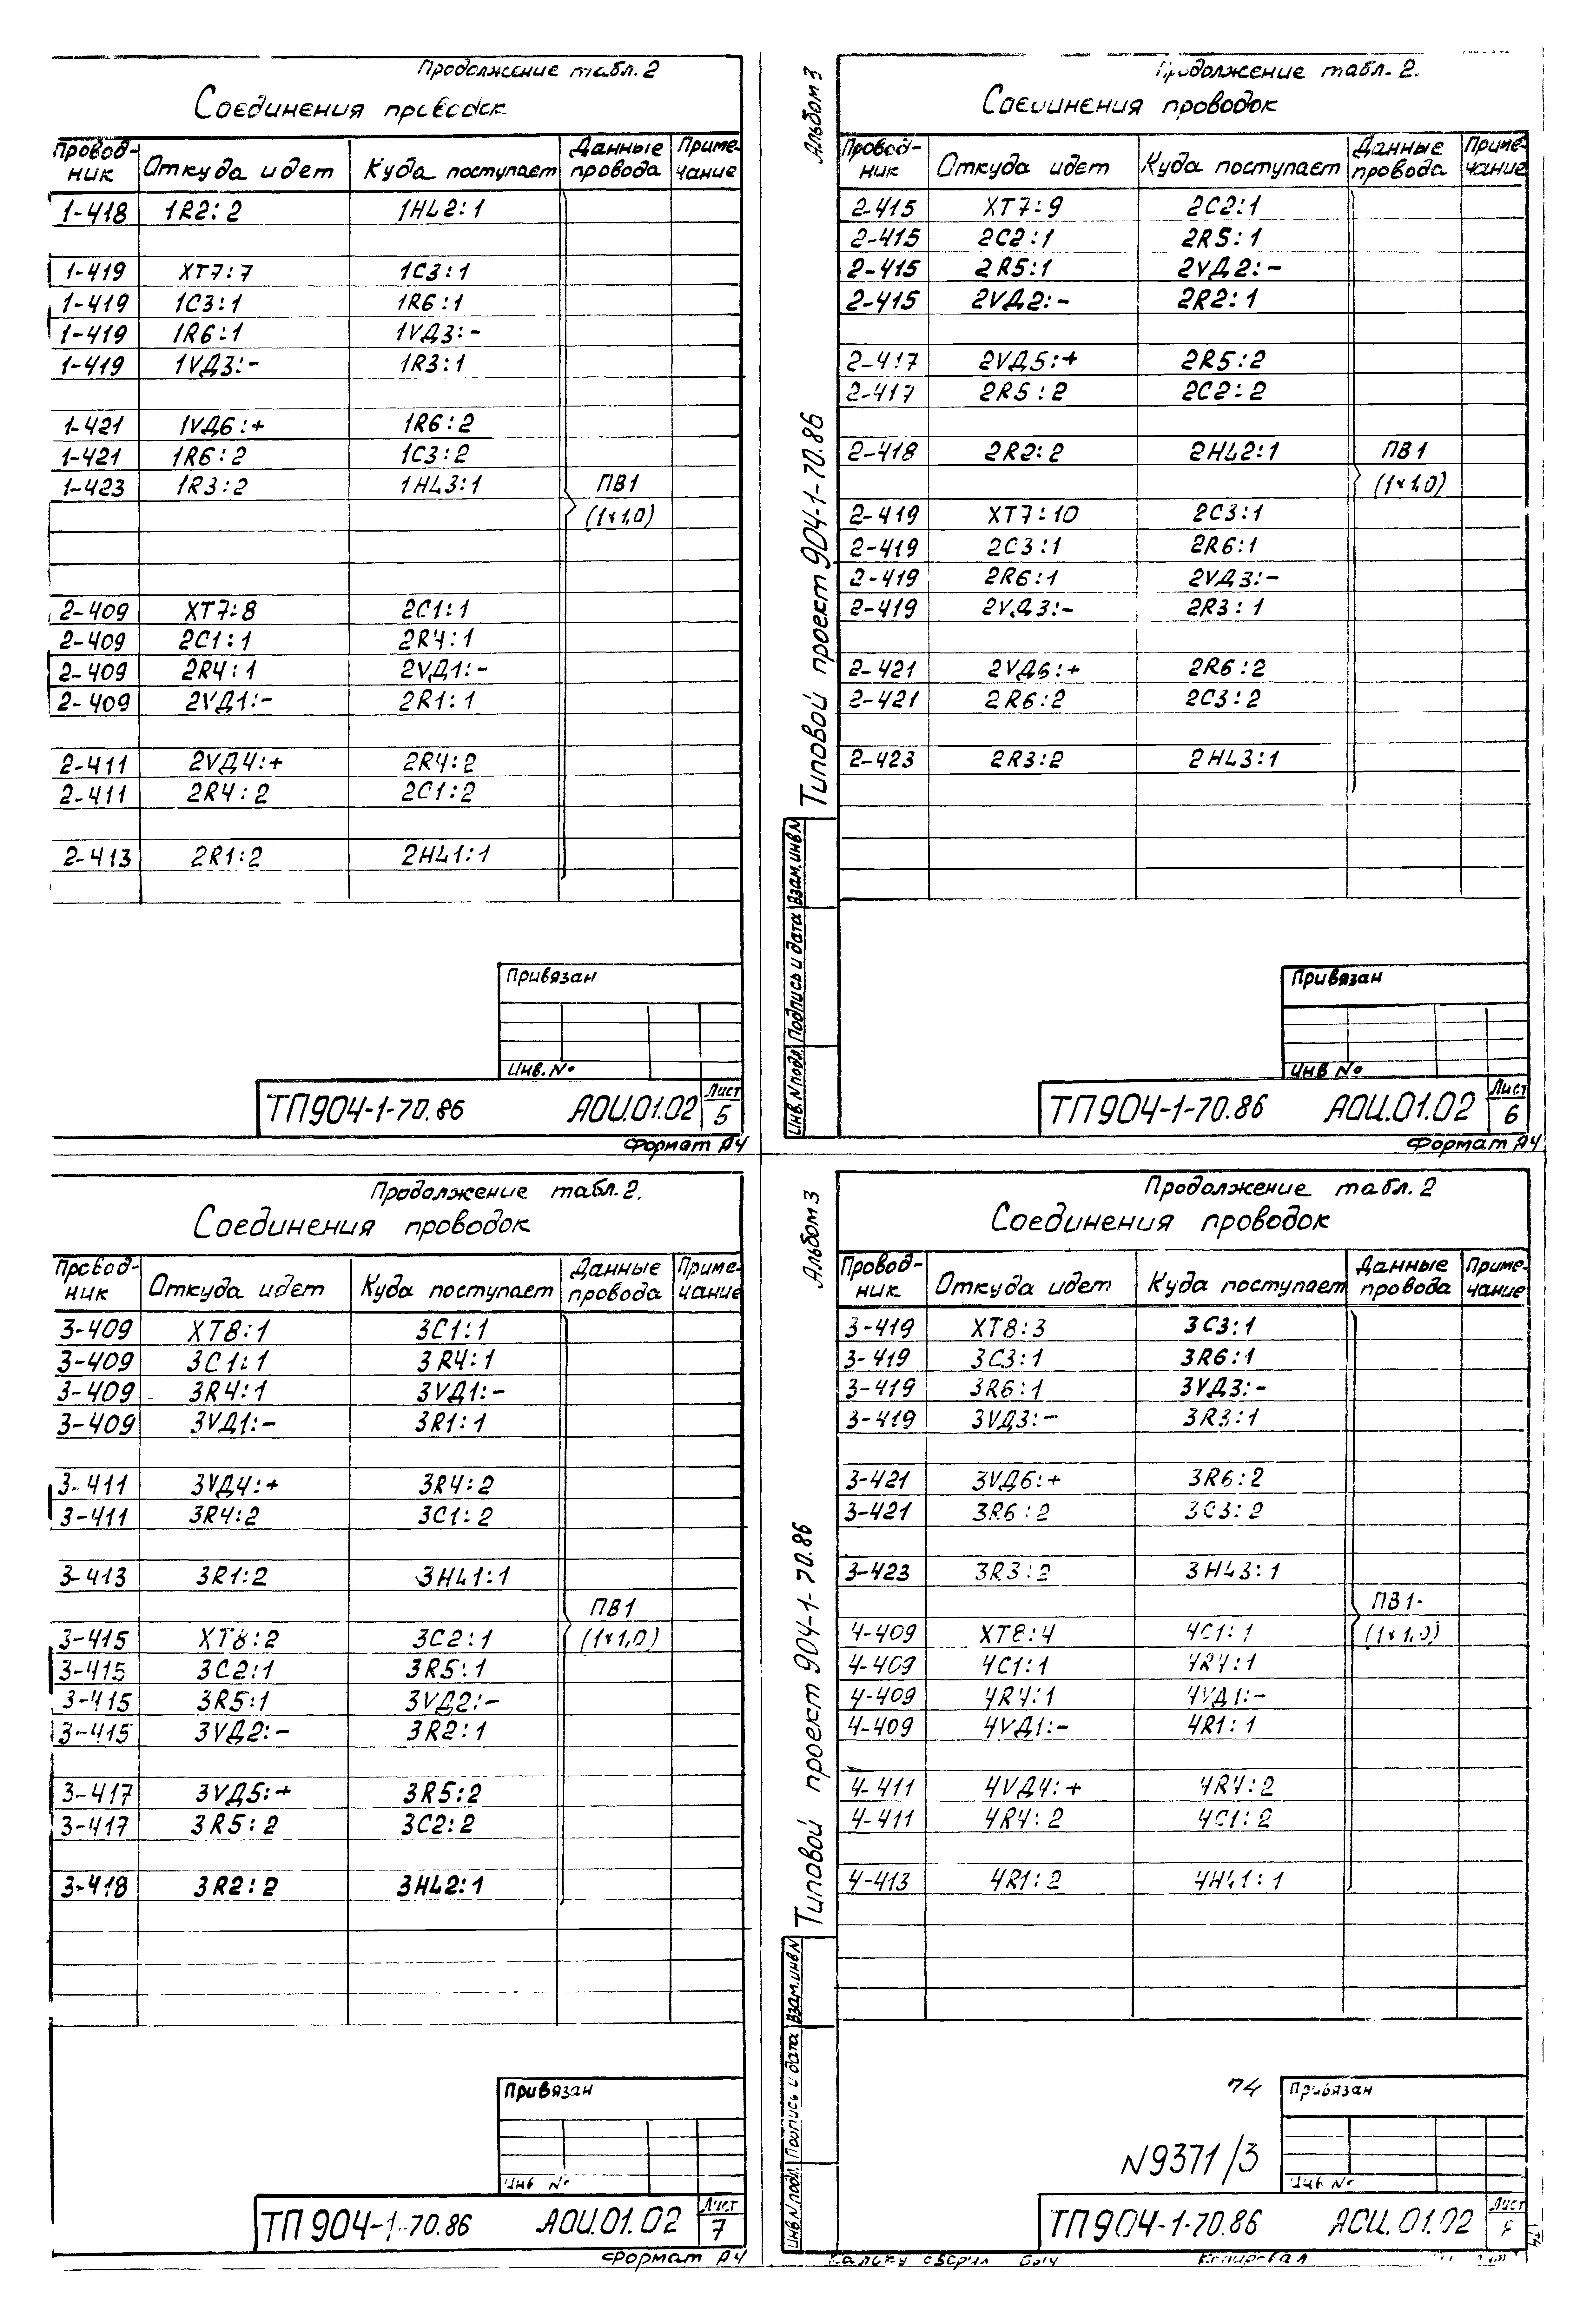 Продолжение табл. 2
Соединения проводок
Провод-ник Откуда идет Куда поступает Данные провода Приме-чание
1-418 1R2:2 1HL2:1
1-419 XT7:7 1C3:1
1-419 1C3:1 1R6:1
1-419 1R6:1 1VД3:-
1-419 1VД3:- 1R3:1
1-421 1VД6:+ 1R6:2
1-421 1R6:2 1C3:2
1-423 1R3:2 1HL3:1 ПВ1
(1×1,0)
2-409 XT7:8 2C1:1
2-409 2C1:1 2R4:1
2-409 2R4:1 2VД1:-
2-409 2VД1:- 2R1:1
2-411 2VД4:+ 2R4:2
2-411 2R4:2 2C1:2
2-413 2R1:2 2HL1:1
Привязан
Инв. №
ТП904-1-70.86 АОИ.01.02 Лист 5
Формат А4
Альбом 3
Типовой проект 904-1-70.86
Инв. N подл. Подпись и дата Взам.инв N
Продолжение табл. 2.
Соединения проводок
Провод-ник Откуда идет Куда поступает Данные провода Приме-чание
2-415 XT7:9 2C2:1
2-415 2C2:1 2R5:1
2-415 2R5:1 2VД2:-
2-415 2VД2:- 2R2:1
2-417 2VД5:+ 2R5:2
2-417 2R5:2 2C2:2
2-418 2R2:2 2HL2:1 ПВ1
(1×1,0)
2-419 XT7:10 2C3:1
2-419 2C3:1 2R6:1
2-419 2R6:1 2VД3:-
2-419 2VД3:- 2R3:1
2-421 2VД6:+ 2R6:2
2-421 2R6:2 2C3:2
2-423 2R3:2 2HL3:1
Привязан
Инв №
ТП904-1-70.86 АОИ.01.02 Лист 6
Формат А4
Продолжение табл. 2.
Соединения проводок
Провод-ник Откуда идет Куда поступает Данные провода Приме-чание
3-409 XT8:1 3C1:1
3-409 3C1:1 3R4:1
3-409 3R4:1 3VД1:-
3-409 3VД1:- 3R1:1
3-411 3VД4:+ 3R4:2
3-411 3R4:2 3C1:2
3-413 3R1:2 3HL1:1
ПВ1
3-415 XT8:2 3C2:1 (1×1,0)
3-415 3C2:1 3R5:1
3-415 3R5:1 3VД2:-
3-415 3VД2:- 3R2:1
3-417 3VД5:+ 3R5:2
3-417 3R5:2 3C2:2
3-418 3R2:2 3HL2:1
Привязан
Инв №
ТП904-1-70.86 АОИ.01.02 Лист 7
Формат А4
Альбом 3
Типовой проект 904-1-70.86
Инв N подл. Подпись и дата Взам.инв N
Продолжение табл. 2
Соединения проводок
Провод-ник Откуда идет Куда поступает Данные провода Приме-чание
3-419 XT8:3 3C3:1
3-419 3C3:1 3R6:1
3-419 3R6:1 3VД3:-
3-419 3VД3:- 3R3:1
3-421 3VД6:+ 3R6:2
3-421 3R6:2 3C3:2
3-423 3R3:2 3HL3:1
ПВ1
4-409 XT8:4 4C1:1 (1×1,0)
4-409 4C1:1 4R4:1
4-409 4R4:1 4VД1:-
4-409 4VД1:- 4R1:1
4-411 4VД4:+ 4R4:2
4-411 4R4:2 4C1:2
4-413 4R1:2 4HL1:1
74
N9371/3
Привязан
Инв №
ТП904-1-70.86 АОИ.01.02 Лист 8
Кальку сверил Копировал